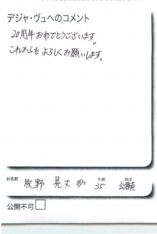 デジャ・ヴュへのコメント
20周年おめでとうございます。
これからもよろしくお願いします。
お名前 牧野 晃大
年齢 35
公開不可